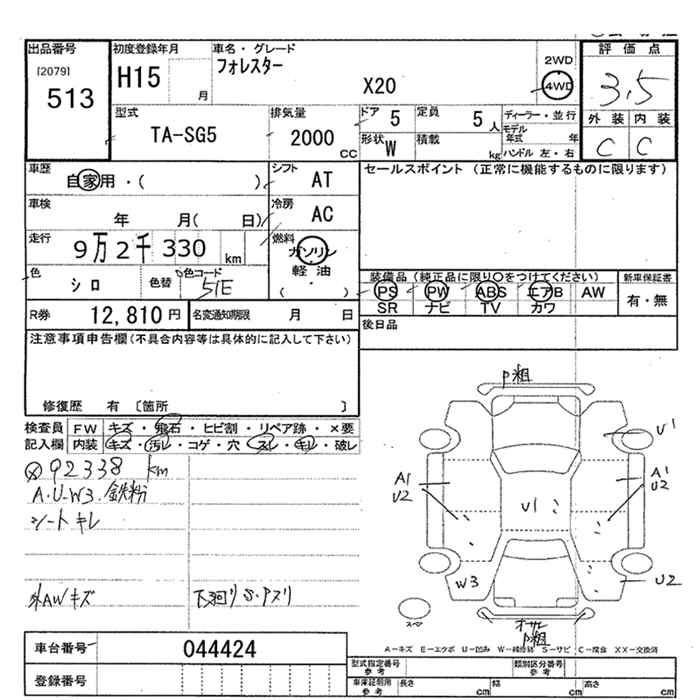 出品番号
[2079]
513
初度登録年月
H15
月
車名・グレード
フォレスター
X20
2WD
4WD
評価点
3.5
外装 内装
C C
型式
TA-SG5
排気量
2000
CC
ドア 5
定員 5 人
形状 W
積載
kg
ディーラー・並行
モデル年式 年
ハンドル 左・右
車歴
自家用・( )
シフト
AT
車検
年 月( 日)
冷房
AC
走行
9万2千330 km
燃料
ガソリン
軽油
( ・ )
色
シロ
色替
色コード
51E
R券
12,810円
名変通知期限 月 日
セールスポイント (正常に機能するものに限ります)
装備品(純正品に限り〇をつけてください)
PS PW ABS エアB AW
SR ナビ TV カワ
新車保証書
有・無
後日品
注意事項申告欄(不具合内容等は具体的に記入して下さい)
修復歴 有 〔箇所 〕
検査員
記入欄
FW キズ・飛石・ヒビ割・リペア跡・×要
内装 キズ・汚レ・コゲ・穴・スレ・キレ・破レ
92338 km
A.U-W3.鉄粉
シートキレ
外AWキズ
下廻りS.アズリ
P粗
U1
A1
U2
A1
U2
U1
W3
U2
スペア
P粗
A-キズ E-エクボ U-凹み W-補修跡 S-サビ C-腐食 XX-交換済
車台番号
044424
登録番号
型式指定番号
参考
類別区分番号
参考
車庫証明用
参考
長さ cm
幅 cm
高さ cm